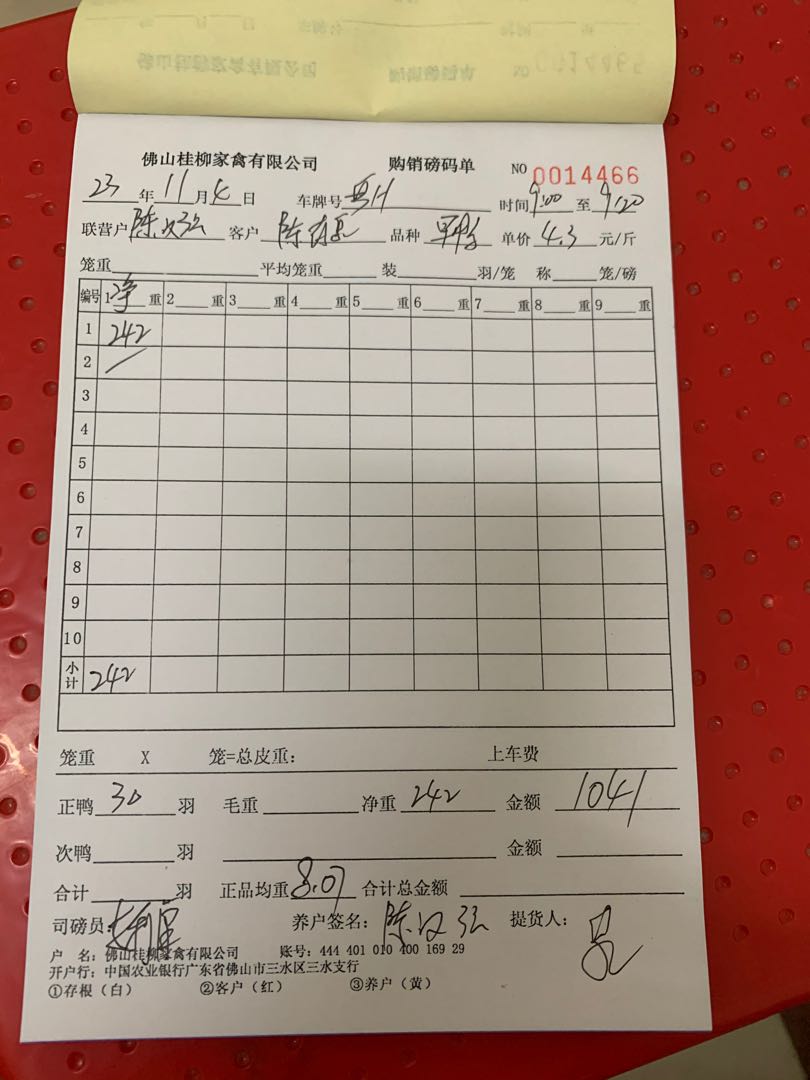 佛山桂柳家禽有限公司 购销磅码单 NO 0014466
23 年 11 月 4 日 车牌号 时间 9:00 至 9:20
联营户 陈汉强 客户 陈 品种 单价 4.3 元/斤
笼重 平均笼重 装 羽/笼 称 笼/磅
编号 1 净 重 2 重 3 重 4 重 5 重 6 重 7 重 8 重 9 重
1 242
2 /
3
4
5
6
7
8
9
10
小计 242
笼重 X 笼=总皮重: 上车费
正鸭 30 羽 毛重 净重 242 金额 1041
次鸭 羽 金额
合计 羽 正品均重 8.07 合计总金额
司磅员: 养户签名: 陈汉强 提货人:
户 名: 佛山桂柳家禽有限公司 账号: 444 401 010 400 169 29
开户行: 中国农业银行广东省佛山市三水区三水支行
①存根(白) ②客户(红) ③养户(黄)